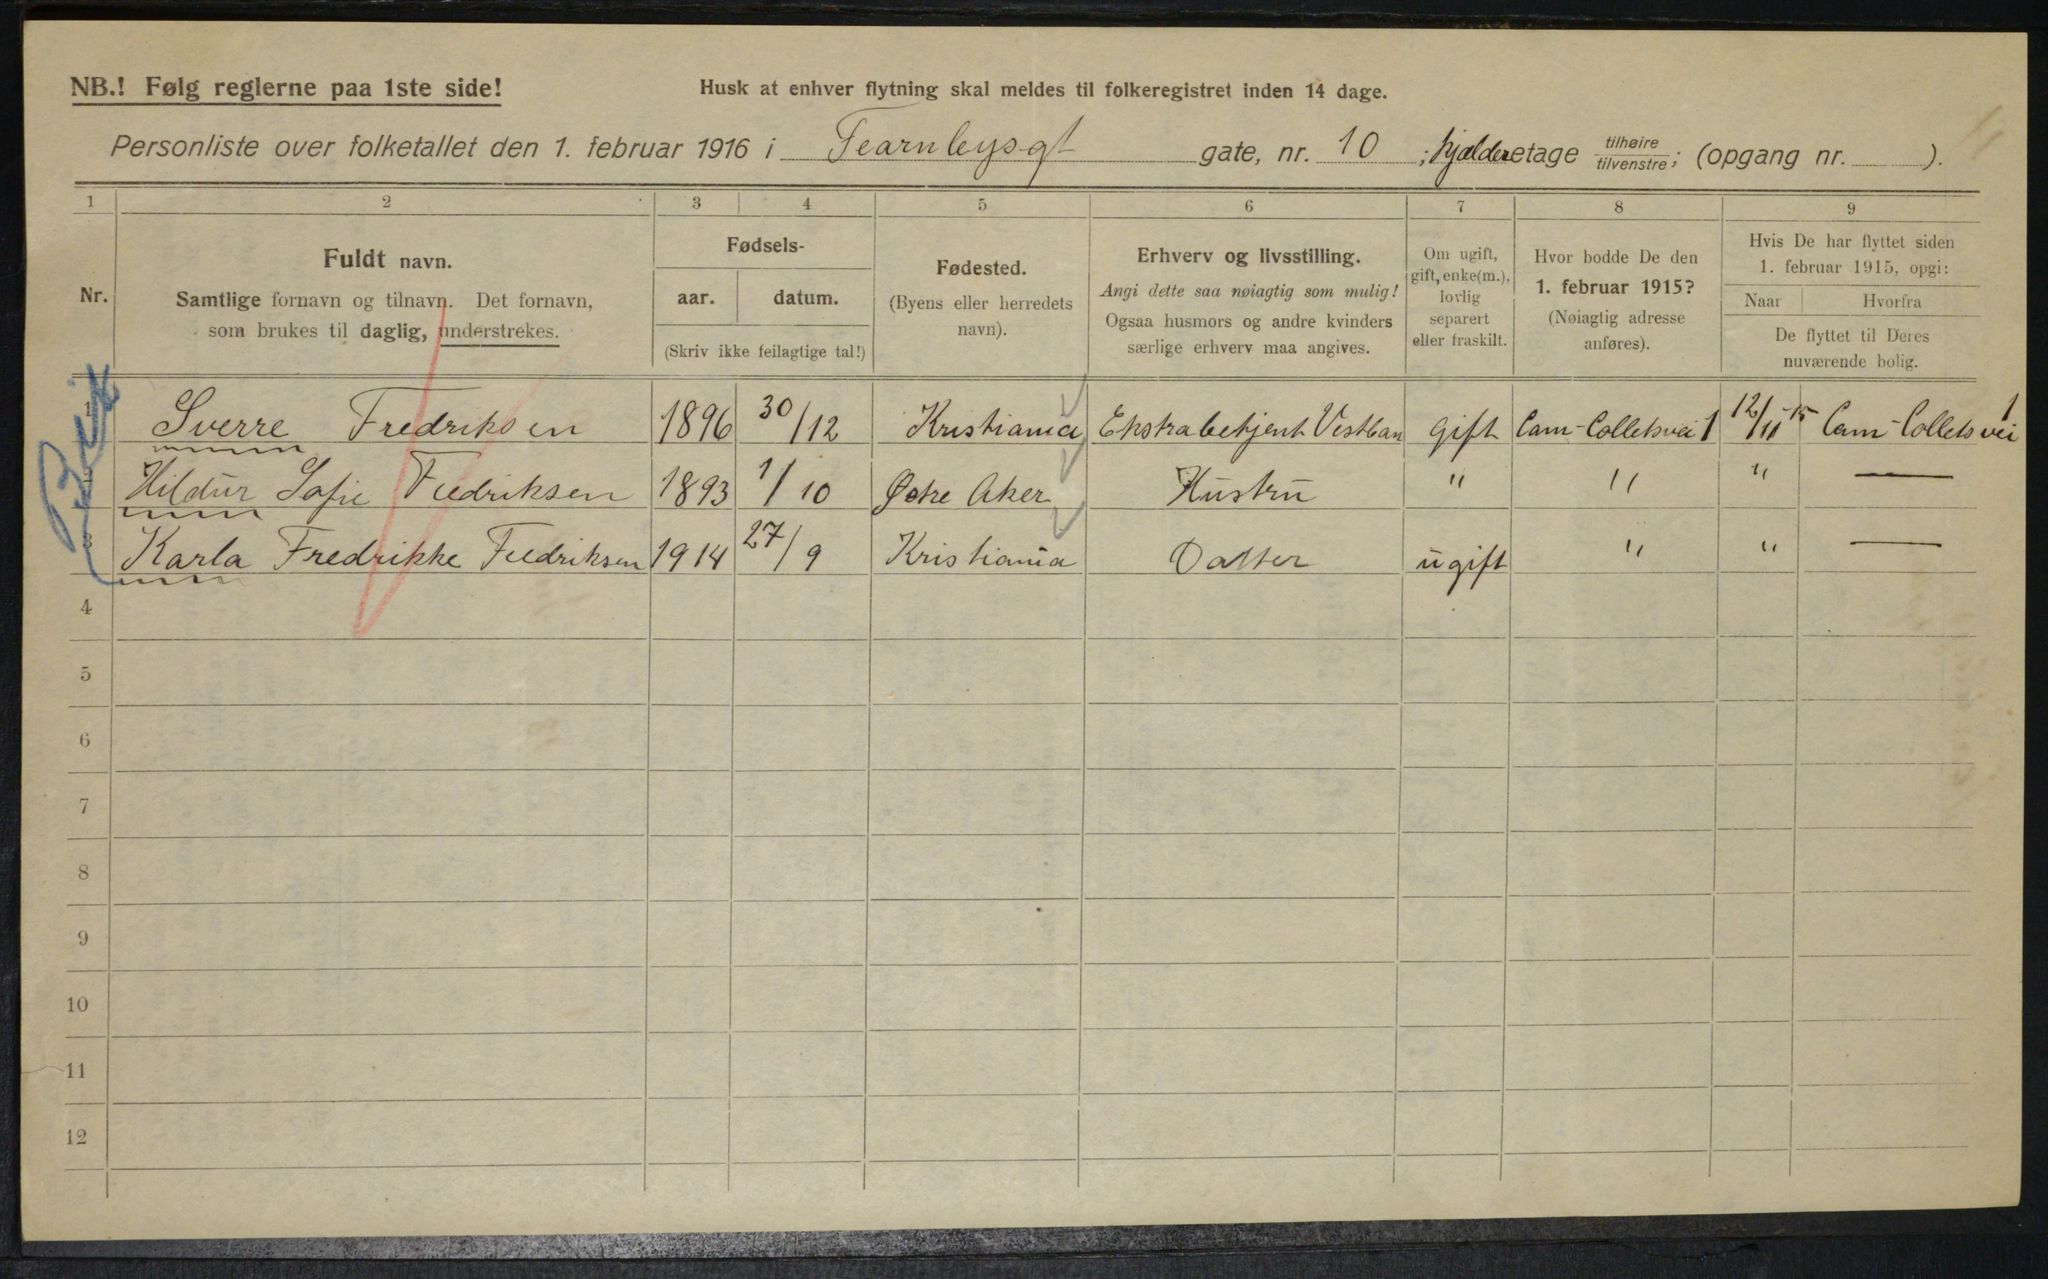 NB.! Følg reglerne paa 1ste side!
Husk at enhver flytning skal meldes til folkeregistret inden 14 dage.
Personliste over folketallet den 1. februar 1916 i Fearnleysgt gate, nr. 10 ; kjælderetage tilhøire/tilvenstre; (opgang nr. ).
1 2 3 4 5 6 7 8 9
Nr.
Fuldt navn.
Samtlige fornavn og tilnavn. Det fornavn,
som brukes til daglig, understrekes.
Fødsels-
aar. datum.
(Skriv ikke feilagtige tal!)
Fødested.
(Byens eller herredets
navn).
Erhverv og livsstilling.
Angi dette saa nøiagtig som mulig!
Ogsaa husmors og andre kvinders
særlige erhverv maa angives.
Om ugift,
gift, enke(m.),
lovlig
separert
eller fraskilt.
Hvor bodde De den
1. februar 1915?
(Nøiagtig adresse
anføres).
Hvis De har flyttet siden
1. februar 1915, opgi:
Naar Hvorfra
De flyttet til Deres
nuværende bolig.
1 Sverre Fredriksen 1896 30/12 Kristiania Ekstrabetjent Vestban gift Cam-Colletsvei 1 12/11-15 Cam-Collets vei 1
2 Hildur Sofie Fredriksen 1893 1/10 Østre Aker Hustru " " " —
3 Karla Fredrikke Fredriksen 1914 27/9 Kristiania Datter ugift " " —
4
5
6
7
8
9
10
11
12